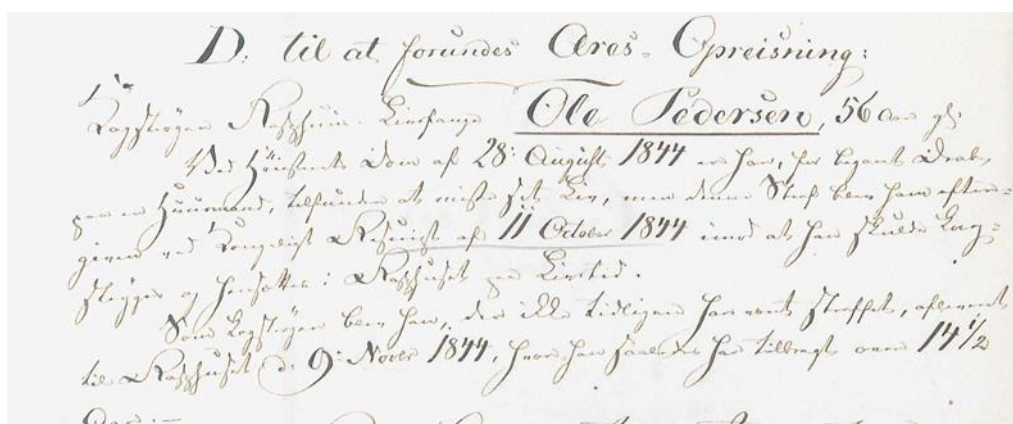 D. til at forundes Æres-Opreisning:
Kagstrøgen Rasphuus-Livsfange Ole Pedersen, 56 Aar gl:
Ved Høiesterets Dom af 28: August 1844 er han, for begaaet Drab
paa en Huusmand, tilfunden at miste sit Liv, men denne Straf blev ham efter-
given ved Kongeligt Rescript af 11 October 1844 imod at han skulde kag-
stryges og hensættes i Rasphuset paa Livstid.
Som kagstrøgen blev han, der ikke tidligere har været straffet, afleveret
til Rasphuset d: 9: Novbr 1844, hvor han saaledes har tilbragt over 14 1/2